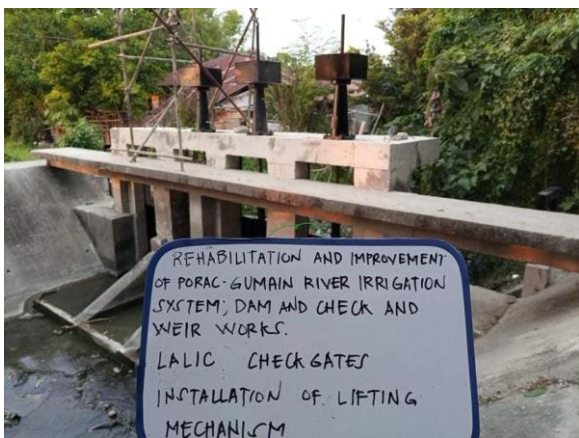 REHABILITATION AND IMPROVEMENT
OF PORAC-GUMAIN RIVER IRRIGATION
SYSTEM; DAM AND CHECK AND
WEIR WORKS.
LALIC CHECKGATES
INSTALLATION OF LIFTING
MECHANISM